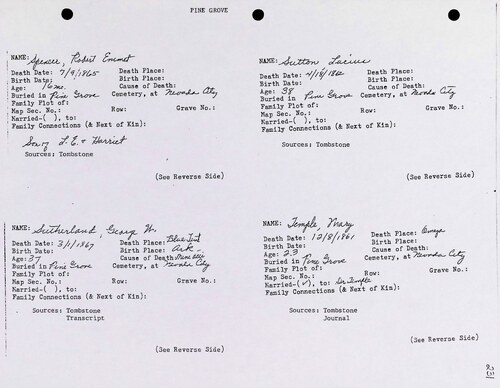 PINE GROVE
NAME: Spencer, Robert Emmet
Death Date: 7/9/1865 Death Place:
Birth Date: Birth Place:
Age: 16 mo. Cause of Death:
Buried in Pine Grove Cemetery, at Nevada City
Family Plot of:
Map Sec. No.: Row: Grave No.:
Married-( ), to:
Family Connections (& Next of Kin):
Son of L.E. & Harriet
Sources: Tombstone
(See Reverse Side)
NAME: Sutton Lucius
Death Date: 4/18/1862 Death Place:
Birth Date: Birth Place:
Age: 38 Cause of Death:
Buried in Pine Grove Cemetery, at Nevada City
Family Plot of:
Map Sec. No.: Row: Grave No.:
Married-( ), to:
Family Connections (& Next of Kin):
Sources: Tombstone
(See Reverse Side)
NAME: Sutherland, George W.
Death Date: 3/11/1867 Death Place: Blue Tent
Birth Date: Birth Place: Ark.
Age: 37 Cause of Death: Mine
Buried in Pine Grove Cemetery, at Nevada City
Family Plot of:
Map Sec. No.: Row: Grave No.:
Married-( ), to:
Family Connections (& Next of Kin):
Sources: Tombstone
Transcript
(See Reverse Side)
NAME: Temple, Mary
Death Date: 12/8/1861 Death Place: Omega
Birth Date: Birth Place:
Age: 23 Cause of Death:
Buried in Pine Grove Cemetery, at Nevada City
Family Plot of:
Map Sec. No.: Row: Grave No.:
Married-(✓), to: Temple
Family Connections (& Next of Kin):
Sources: Tombstone
Journal
(See Reverse Side)